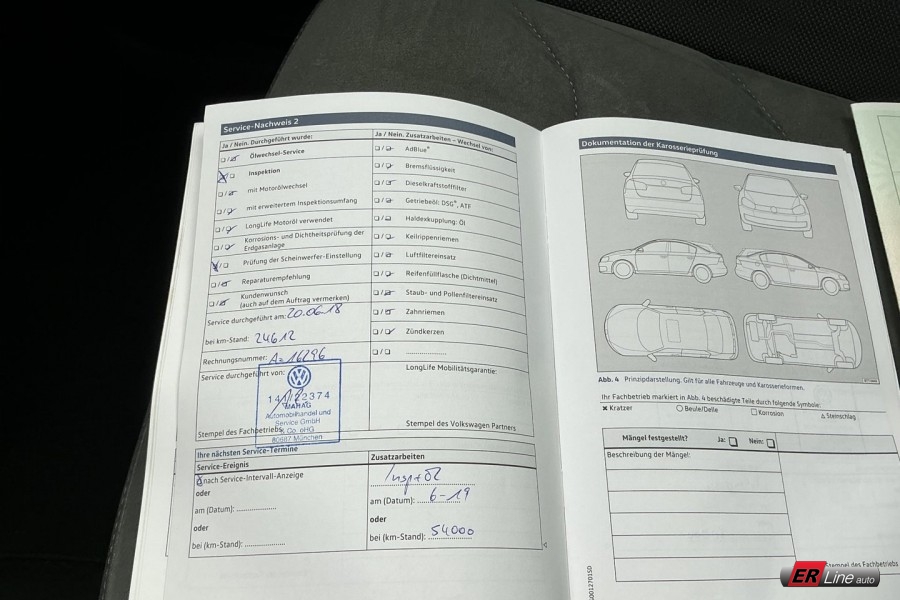 Service-Nachweis 2
Ja / Nein. Durchgeführt wurde:
Ölwechsel-Service
Inspektion
mit Motorölwechsel
mit erweitertem Inspektionsumfang
LongLife Motoröl verwendet
Korrosions- und Dichtheitsprüfung der
Erdgasanlage
Prüfung der Scheinwerfer-Einstellung
Reparaturempfehlung
Kundenwunsch
(auch auf dem Auftrag vermerken)
Service durchgeführt am: 20.06.18
bei km-Stand: 24612
Rechnungsnummer: A= 16296
Service durchgeführt von:
MAHAG
Automobilhandel und
Service GmbH
& Co. oHG
80687 München
Stempel des Fachbetriebs
Ja / Nein. Zusatzarbeiten – Wechsel von:
AdBlue®
Bremsflüssigkeit
Dieselkraftstofffilter
Getriebeöl: DSG®, ATF
Haldexkupplung: Öl
Keilrippenriemen
Luftfiltereinsatz
Reifenfüllflasche (Dichtmittel)
Staub- und Pollenfiltereinsatz
Zahnriemen
Zündkerzen
LongLife Mobilitätsgarantie:
Stempel des Volkswagen Partners
Ihre nächsten Service-Termine
Service-Ereignis
nach Service-Intervall-Anzeige
oder
am (Datum):
oder
bei (km-Stand):
Zusatzarbeiten
Insp+Öl
am (Datum): 6-19
oder
bei (km-Stand): 54000
Dokumentation der Karosserieprüfung
Abb. 4 Prinzipdarstellung. Gilt für alle Fahrzeuge und Karosserieformen.
Ihr Fachbetrieb markiert in Abb. 4 beschädigte Teile durch folgende Symbole:
Kratzer Beule/Delle Korrosion Steinschlag
Mängel festgestellt? Ja: Nein:
Beschreibung der Mängel:
Stempel des Fachbetriebs
ER Line auto